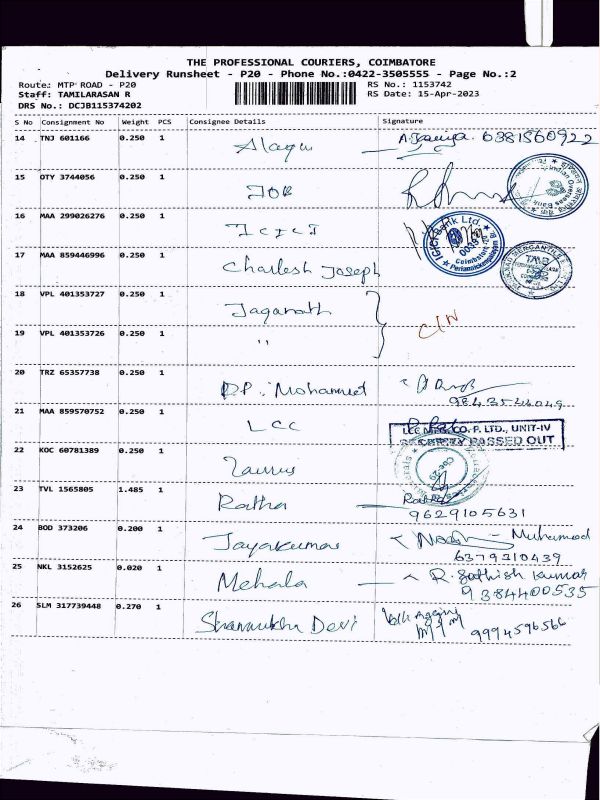 THE PROFESSIONAL COURIERS, COIMBATORE
Delivery Runsheet - P20 - Phone No.:0422-3505555 - Page No.:2
Route: MTP ROAD - P20 RS No.: 1153742
Staff: TAMILARASAN R RS Date: 15-Apr-2023
DRS No.: DCJB115374202
S No Consignment No Weight PCS Consignee Details Signature
14 TNJ 601166 0.250 1 Alagu 6381560922
15 OTY 3744056 0.250 1 IOB Indian Overseas Bank
16 MAA 299026276 0.250 1 ICICI ICICI Bank Ltd. Coimbatore
17 MAA 859446996 0.250 1 Charlesh Joseph TMB
18 VPL 401353727 0.250 1 Jaganath
19 VPL 401353726 0.250 1 "
20 TRZ 65357738 0.250 1 P.P. Mohammed
21 MAA 859570752 0.250 1 LCC CO. P. LTD., UNIT-IV
PASSED OUT
22 KOC 60781389 0.250 1
23 TVL 1565805 1.485 1 Ratha Ratha
9629105631
24 BOD 373206 0.200 1 Jayakumar Muhammad
6379210439
25 NKL 3152625 0.020 1 Mehala R. Sathish Kumar
9384400535
26 SLM 317739448 0.270 1 Shanmukha Devi 9994596566